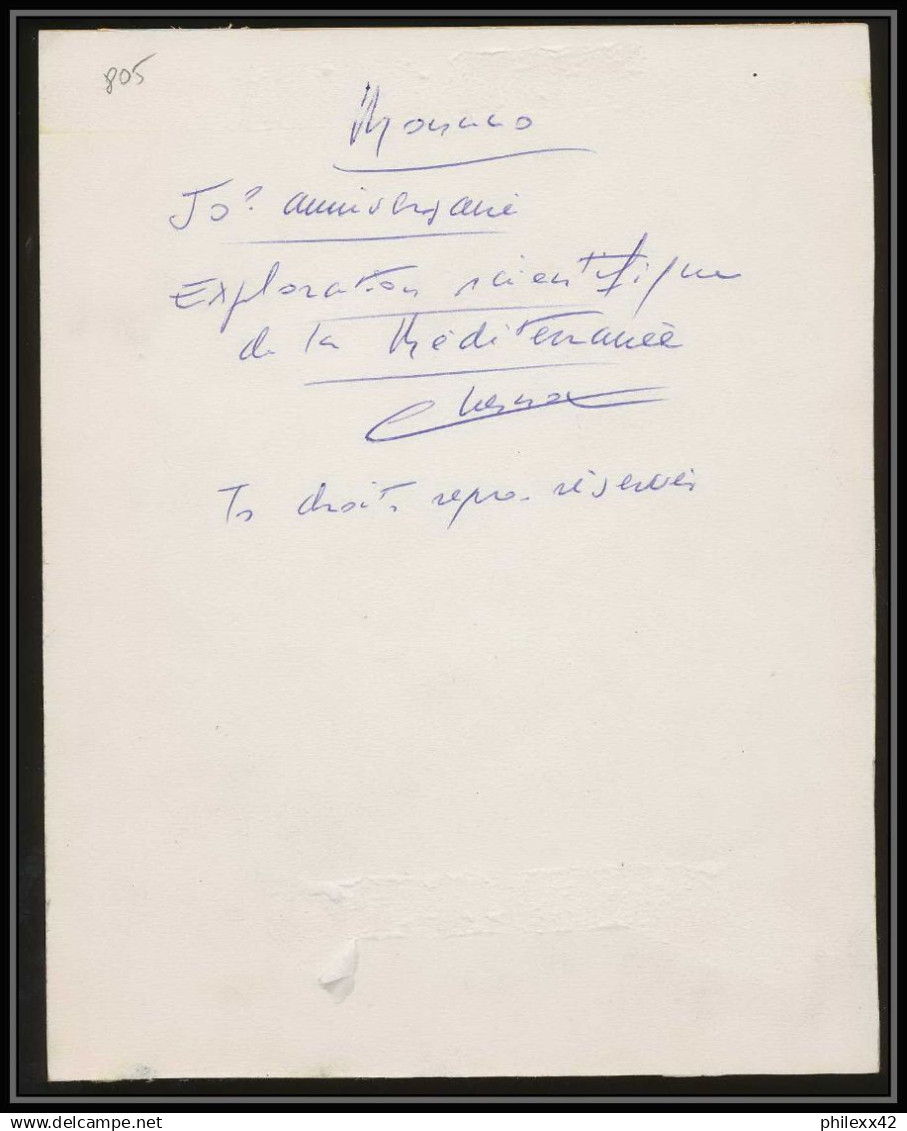 805
Monaco
50e anniversaire
Exploration scientifique
de la Méditerranée
Chesnot
Ts droits repro. réservés
philexx42